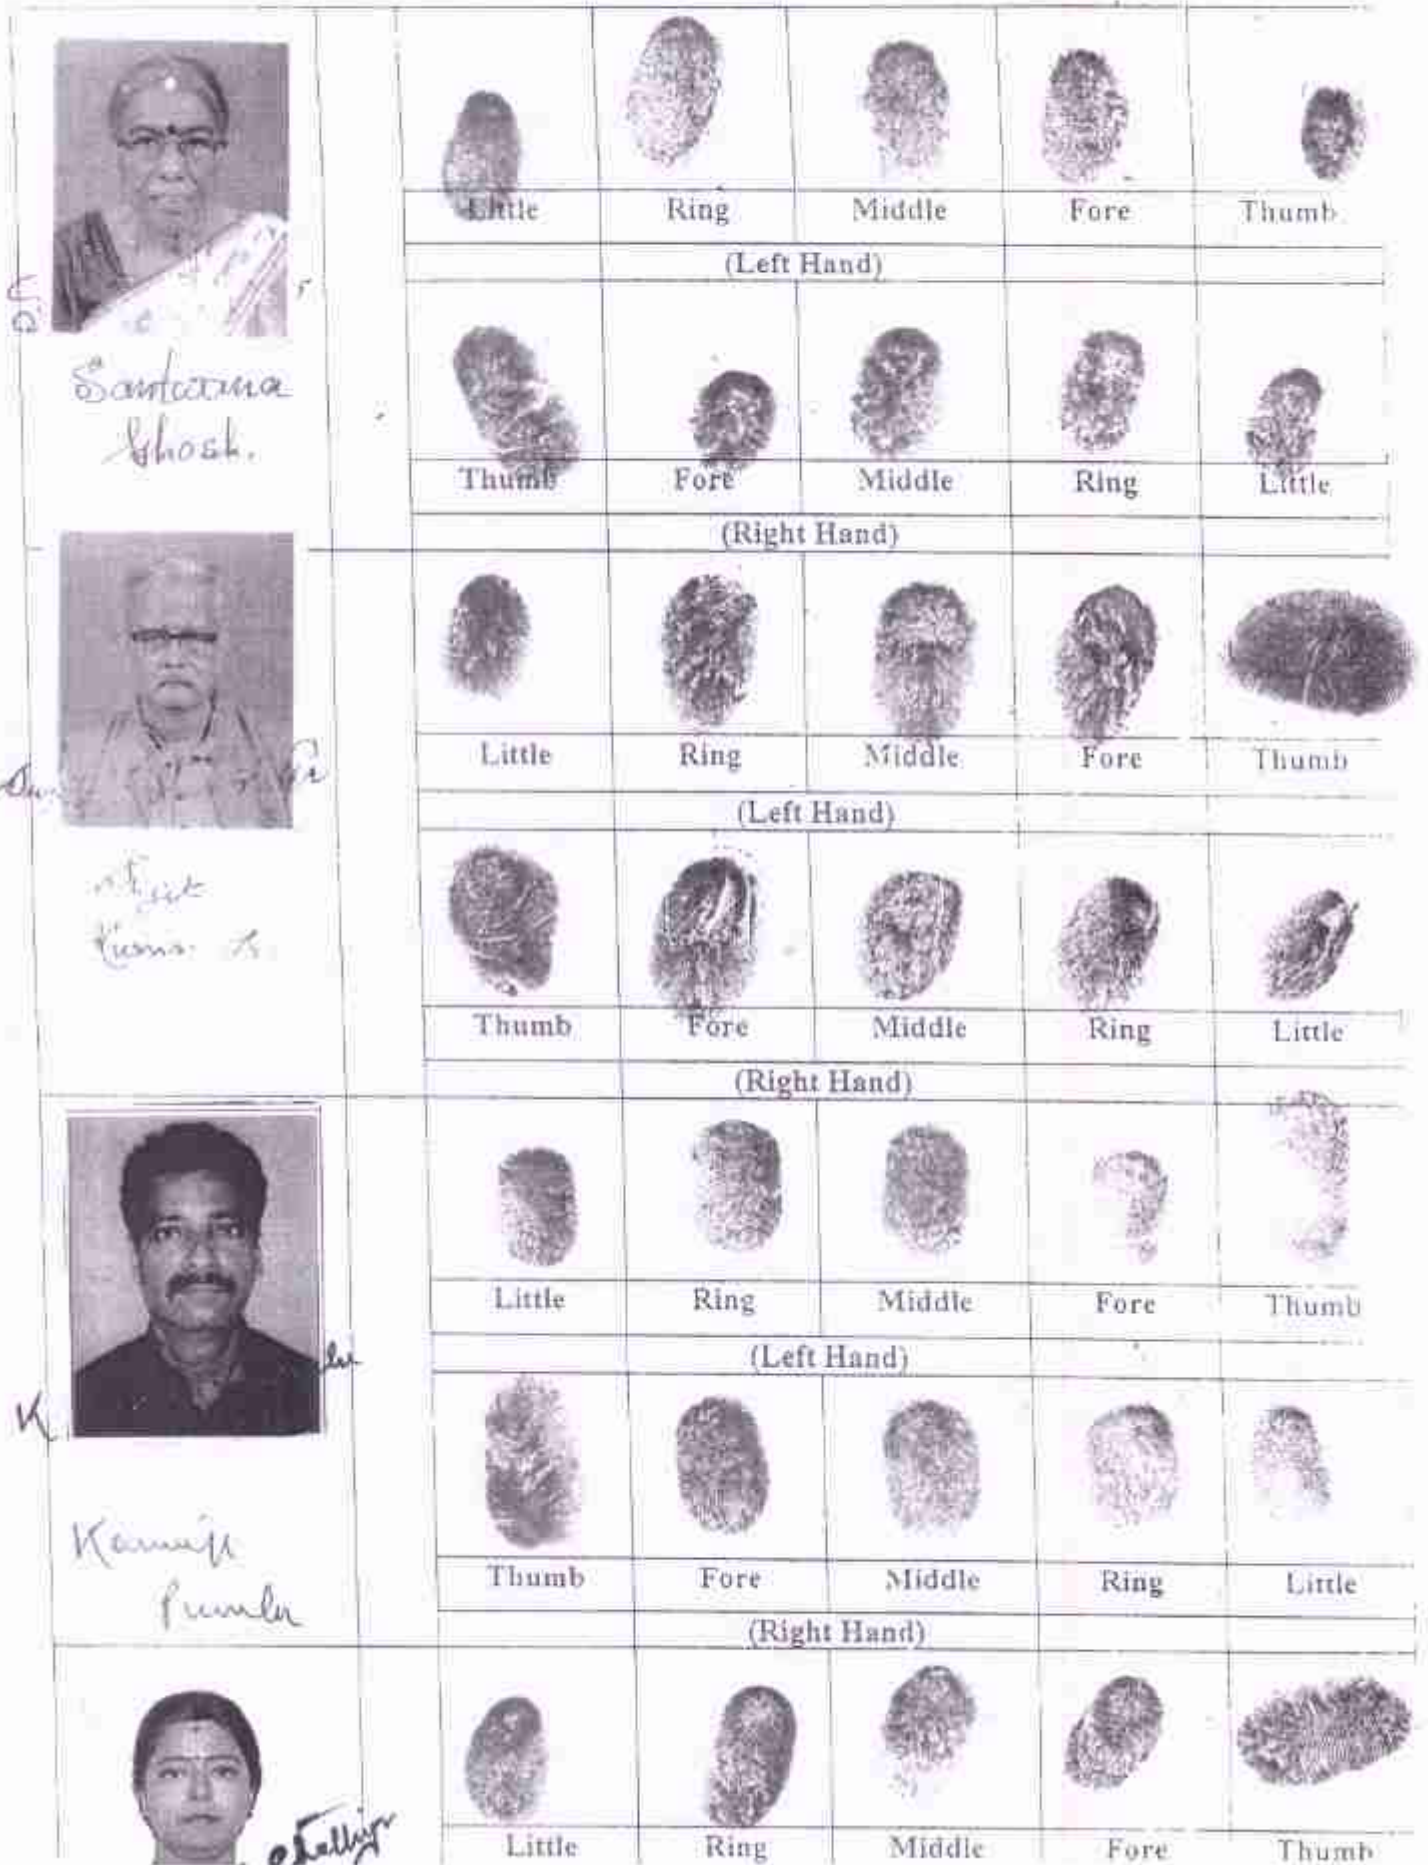 Little Ring Middle Fore Thumb
(Left Hand)
Ghosh.
Thumb Fore Middle Ring Little
(Right Hand)
Little Ring Middle Fore Thumb
(Left Hand)
Thumb Fore Middle Ring Little
(Right Hand)
Little Ring Middle Fore Thumb
(Left Hand)
K
Thumb Fore Middle Ring Little
(Right Hand)
Little Ring Middle Fore Thumb